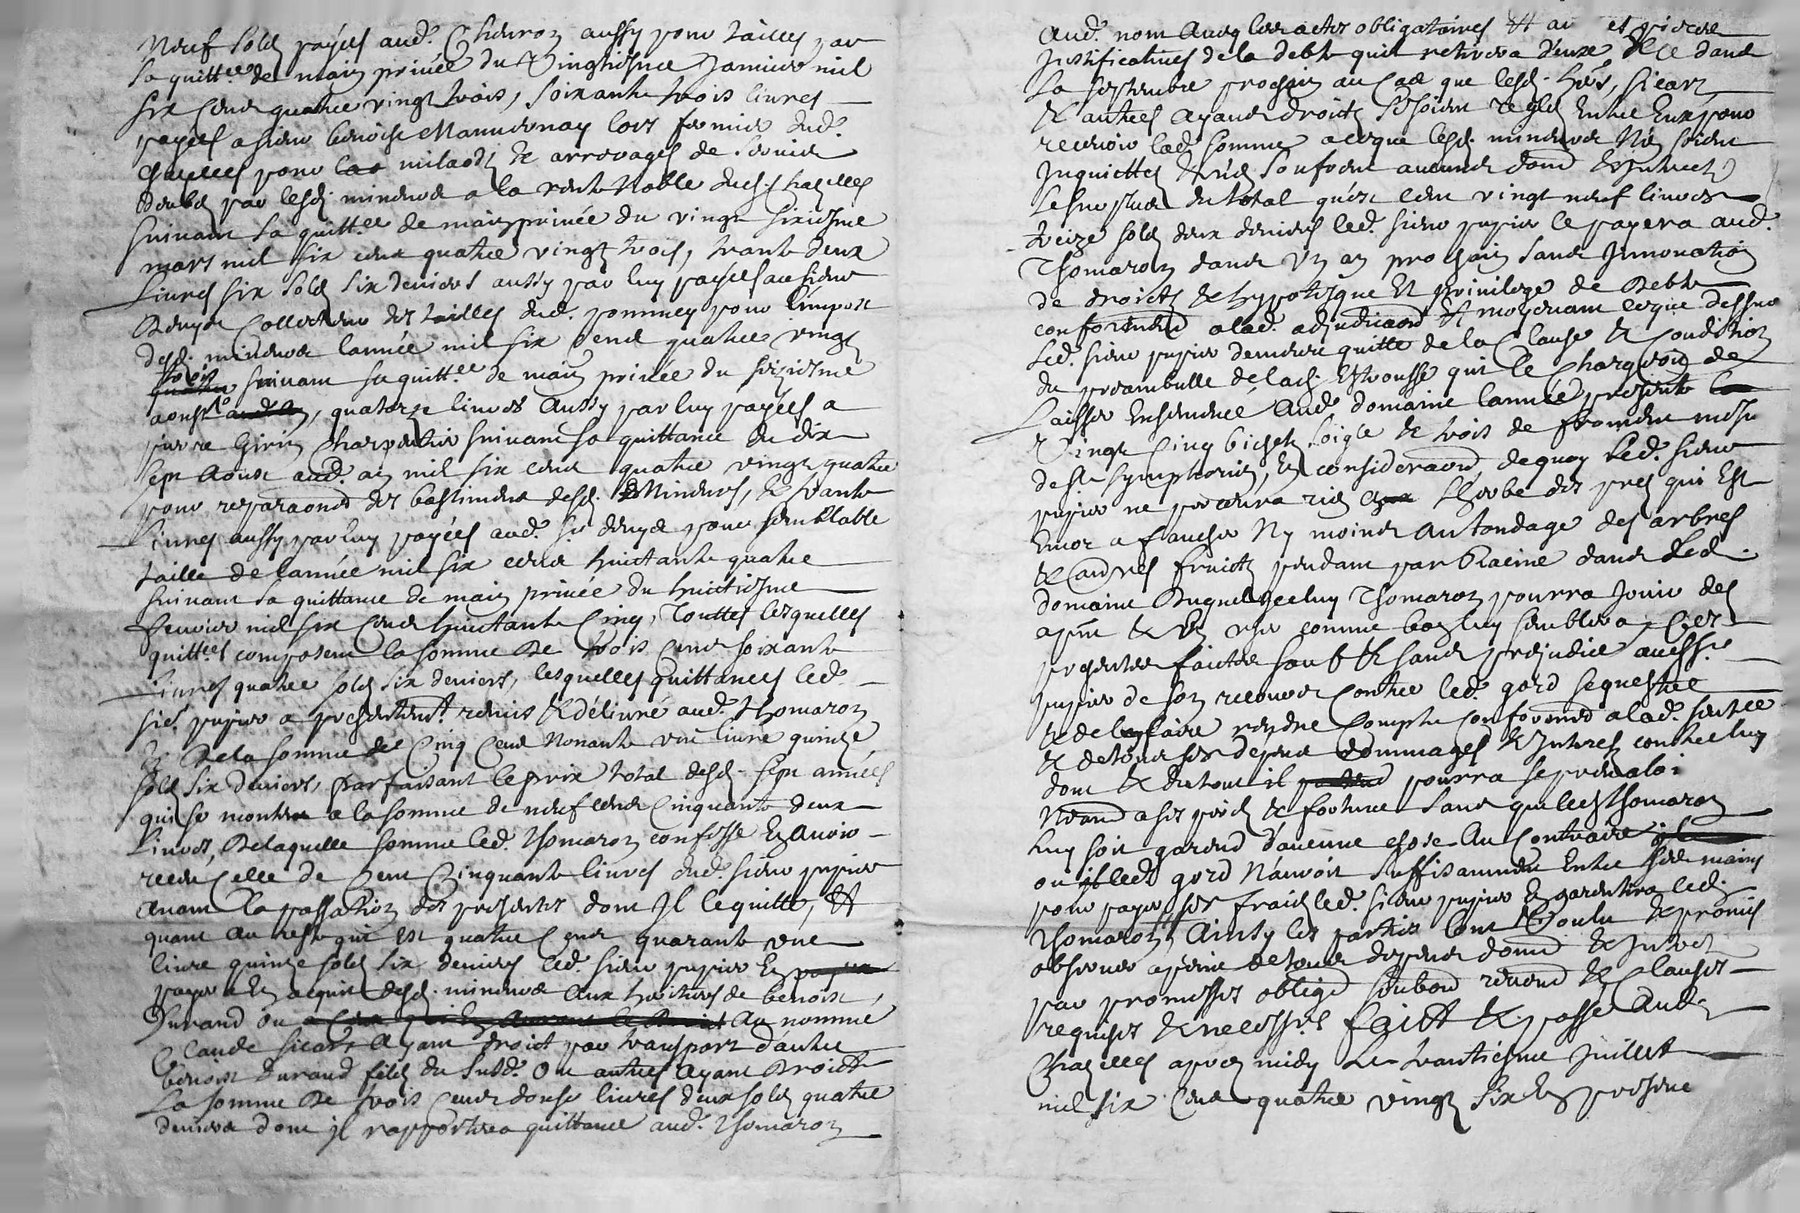 neuf solz payés aud. Chevron aussy pour tailles par
sa quitt.ce de main privée du vingtiesme janvier mil
six cens quatre vingt trois, soixante trois livres
payés a sieur benoist lors fermier dud.
Chazelles pour milaods & arrerages de servis
deubz par lesd. mineurs a la rente noble dud. Chazelles
suivant sa quitt.ce de main privée du vingt sixiesme
mars mil six cens quatre vingt trois, trante deux
livres six solz six deniers aussy par luy payés au sieur
Denys Collecteur des tailles dud. pommey pour limpost
desd. mineurs lannée mil six cens quatre vingt
trois suivant sa quitt.ce de main privée du seiziesme
aoust, quatorze livres aussy par luy payés a
pierre Girin charpentier suivant sa quittance du dix
sept aoust aud. an mil six cens quatre vingt quatre
pour reparaons des bastiments desd. Mineurs, & trante
livres aussy par luy payés aud. sr denys pour semblable
taille de lannée mil six cens huictante quatre
suivant sa quittance de main privée du huictiesme
fevrier mil six cens huictante cinq, Touttes lesquelles
quitt.ces composent la somme de trois cens soixante
livres quatre solz six deniers, lesquelles quittances led.
sieur pupier a presentem.t remis & délivré aud. thomaron
& de la somme de cinq cens nonante une livre quinze
solz six deniers, parfaisant le prix total desd. sept années
qui se montre a la somme de neuf cens cinquante deux
livres, de laquelle somme led. Thomaron confesse en avoir
receu celle de cent cinquante livres dud. sieur pupier
avant la passation des presentes dont il le quitte, &
quant au reste qui est quatre cens quarante une
livre quinze solz six deniers led. sieur pupier en
payera en acquit desd. mineurs aux hoirs de benoist
Durand ou au nommé
Claude sicard ayant droict par transport dautre
benoist Durand filz du susd. ou autres ayant droict
la somme de trois cens douse livres deux solz quatre
deniers dont il rapportera quittance aud. Thomaron
aud. nom avec les actes obligatoires & au et pieces
justificatives de la debte quil retirera deux & ce dans
la septembre prochain au cas que lesd. hers, sicard
& autres ayans droicts se soient reglés entre eux pour
recevoir lad. somme a ce que lesd. mineurs n'en soient
inquiettés & n'en souffrent aucuns doms & interests
le surplus du total qu'est cent vingt neuf livres
treize solz deux deniers led. sieur pupier le payera aud.
Thomaron dans un an prochain sans innovation
de droicts & hypotisque et privilege de debte
conformem.t a lad. adjudicaon & moyenant ce que dessus
led. sieur pupier demeure quitte de la clause & condition
du preambulle de lad. estrousse qui le chargeoit de
laisser ensemencé aud. domaine lannée presente
vingt cinq bichets soigle & trois de froment mesure
de st symphorien, en consideraon dequoy led. sieur
pupier ne percevra rien a lherbe des prés qui est
encor a faucher ny moins au tondage des arbres
& autres fruicts pendans par racine dans led.
domaine duquel icelluy Thomaron pourra jouir dez
apnt & en user comme bon luy semblera, ces
presentes faictes sauf & sans prejudice aud. sr
pupier de son recouvre contre led. gord sequestre
& de le faire rendre compte conformem.t a lad. sentce
& de tous ses depens dommages & interests contre luy
dont & du tout il pourra se prevaloir
a ses perilz & fortune sans que led. Thomaron
luy soit garend d'aucune chose au contraire
ou led. gord n'auroit suffisamment entre ses mains
pour payer ses fraicts led. sieur pupier en garentira led.
Thomaron, Ainsy les parties lont voulu & promis
observer a peine de tous despens doms & interests
par promesses obligé soubmis renoncé & clauses
requises & necess.res faict & passé aud.
Chazelles apres midy le trantiesme juillet
mil six cens quatre vingt six en presence